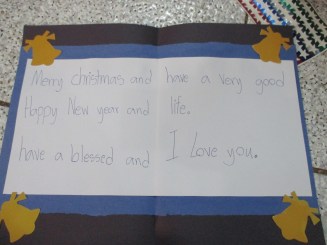 Merry christmas and have a very good
Happy New year and life.
have a blessed and I Love you.